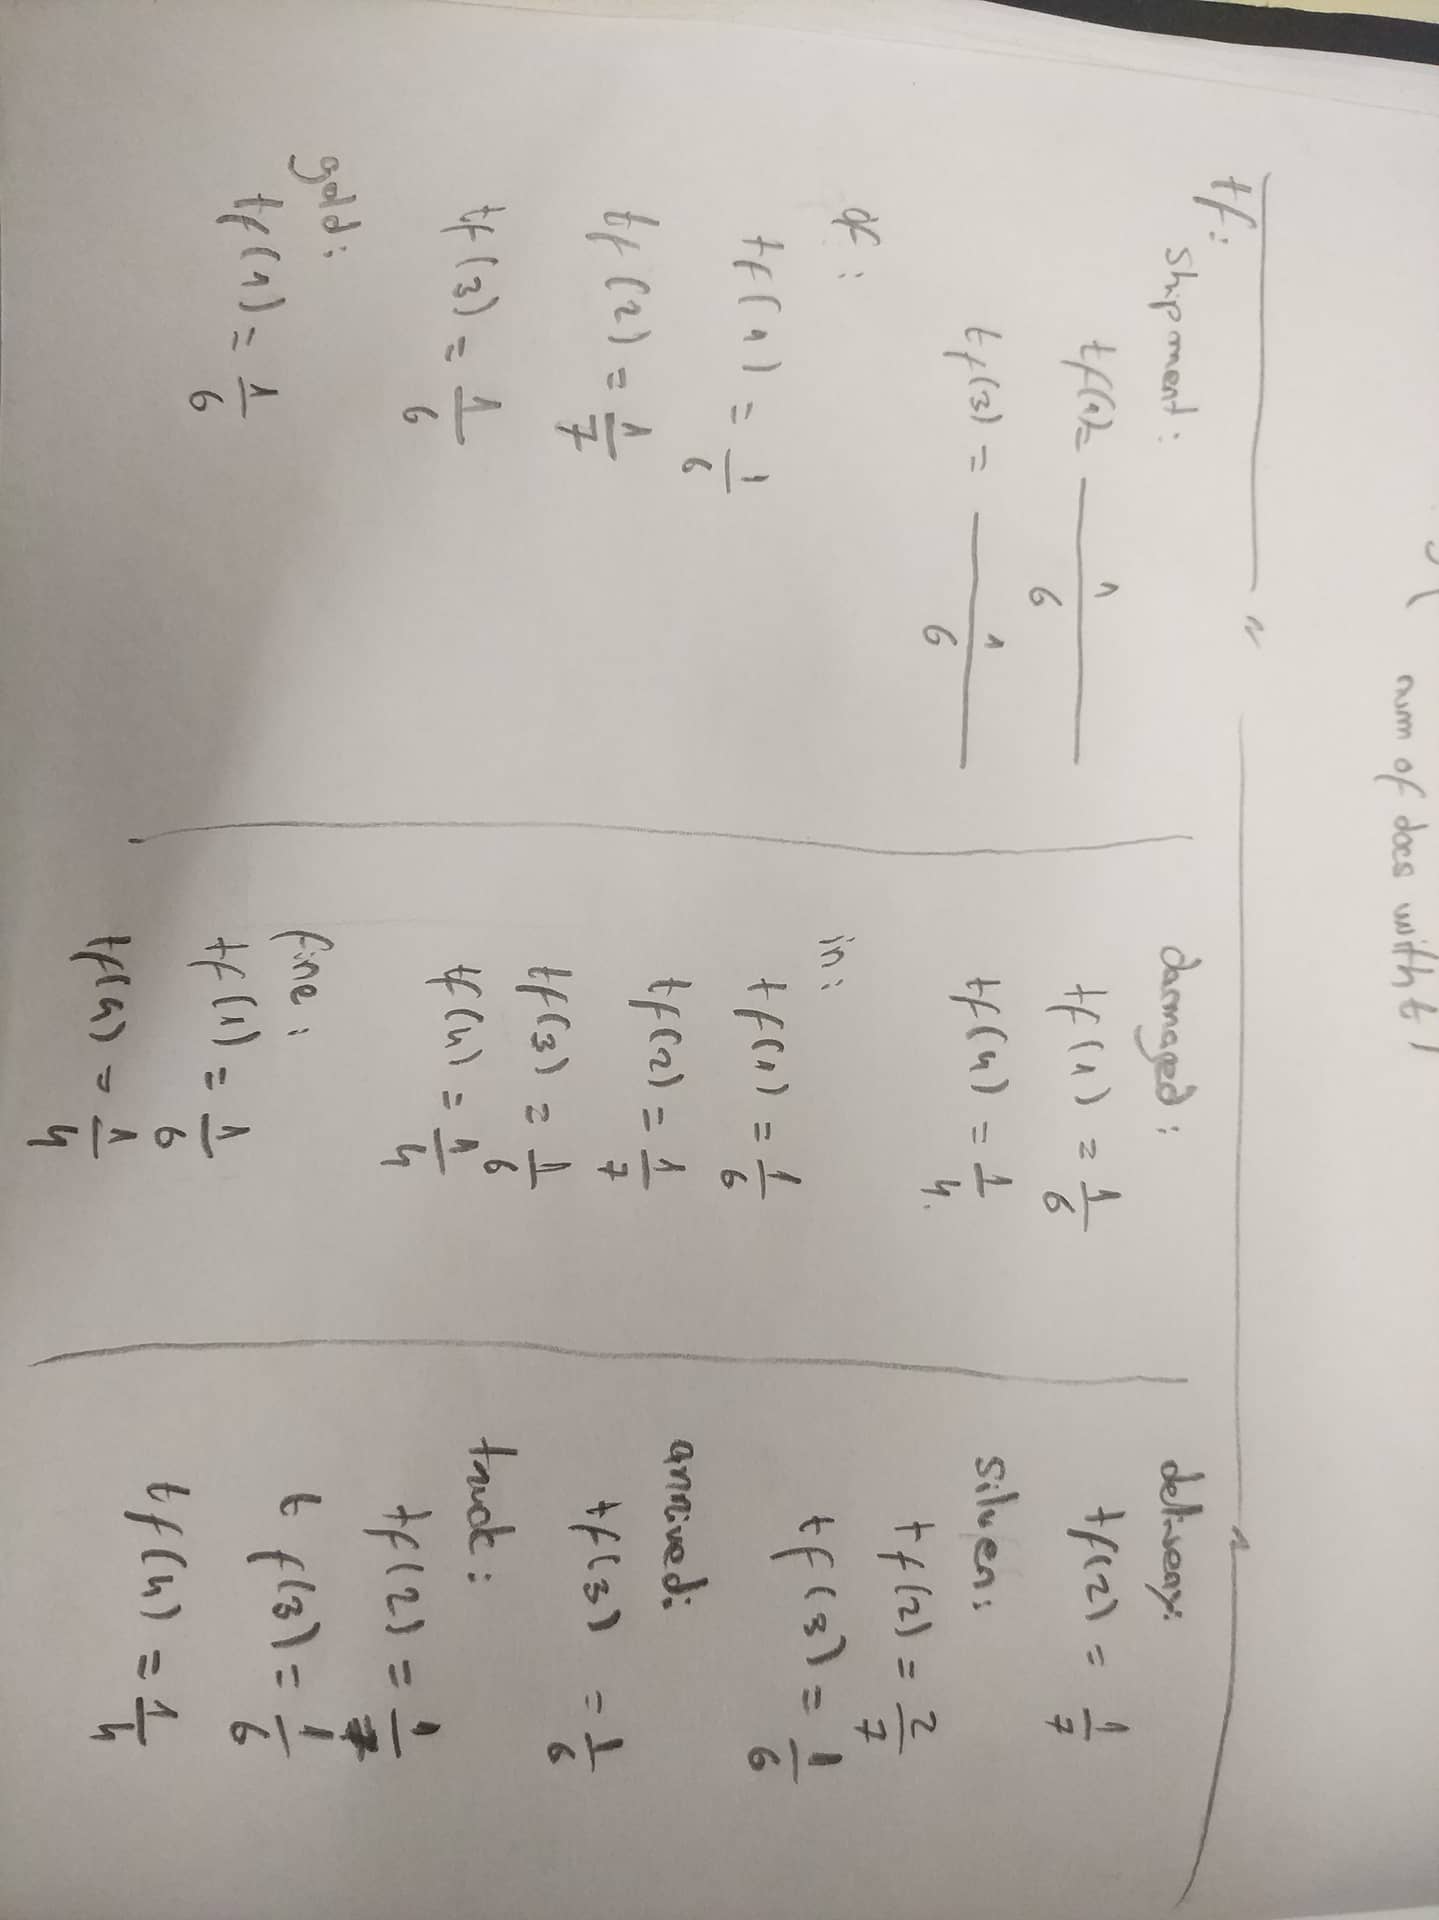 num of docs with t
tf:
shipment:
tf(1)= 1/6
tf(3) = 1/6
of:
tf(1) = 1/6
tf(2) = 1/7
tf(3) = 1/6
gold:
tf(1) = 1/6
damaged:
tf(1) = 1/6
tf(4) = 1/4
in:
tf(1) = 1/6
tf(2) = 1/7
tf(3) = 1/6
tf(4) = 1/4
fire:
tf(1) = 1/6
tf(4) = 1/4
delivery:
tf(2) = 1/7
silver:
tf(2) = 2/7
tf(3) = 1/6
arrived:
tf(3) = 1/6
truck:
tf(2) = 1/7
tf(3) = 1/6
tf(4) = 1/4